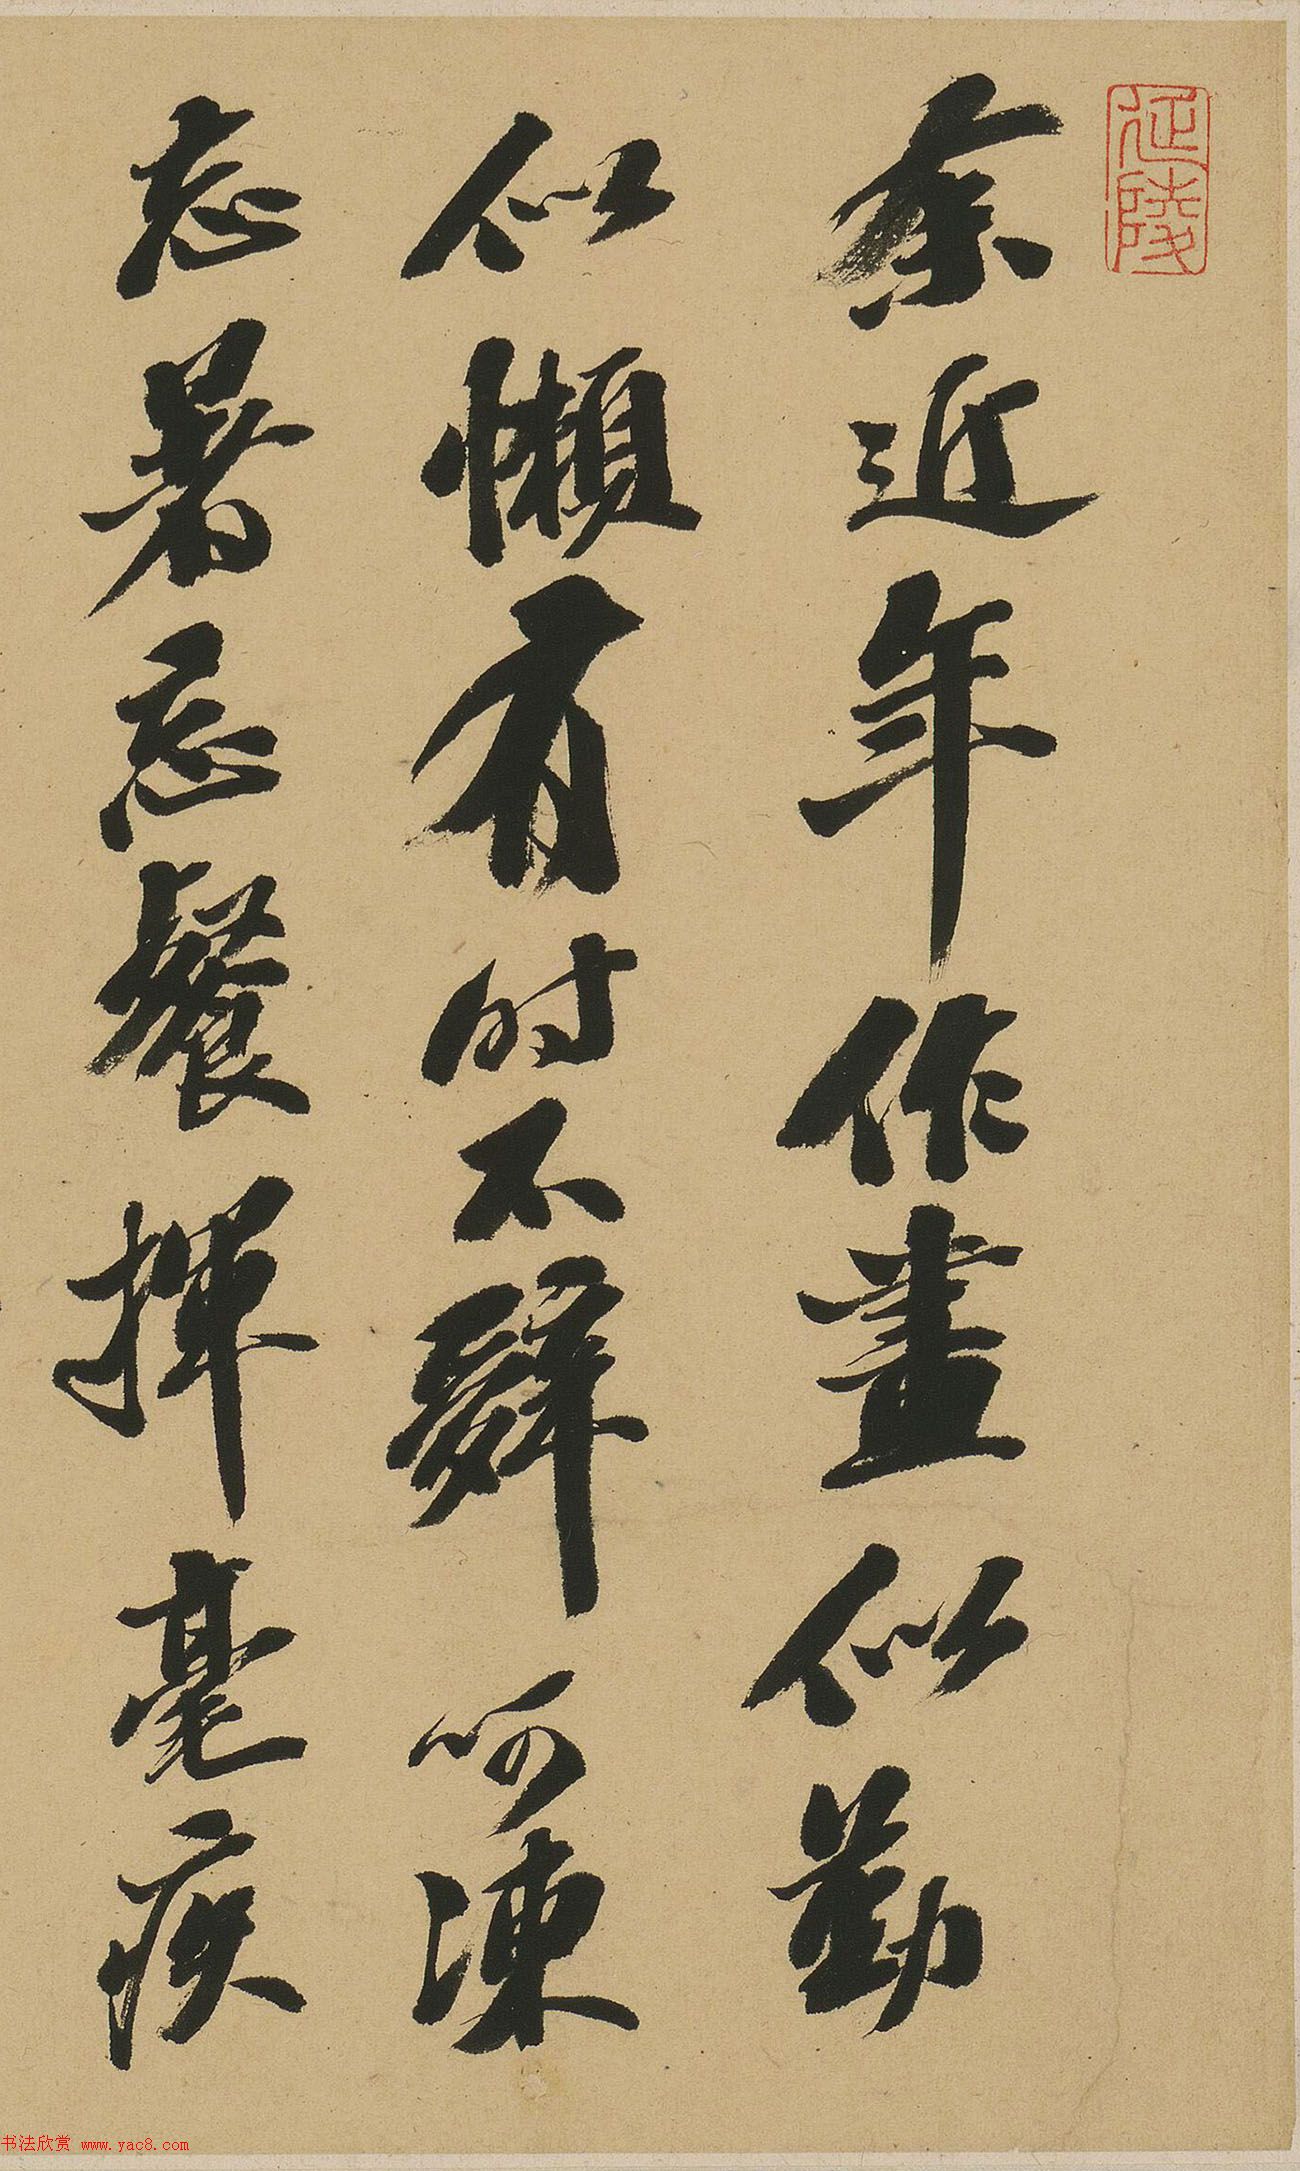 延陵
余近年作畫似勤
似懶有時不辭呵凍
忘暑忘餐揮毫疾
书法欣赏 www.yac8.com